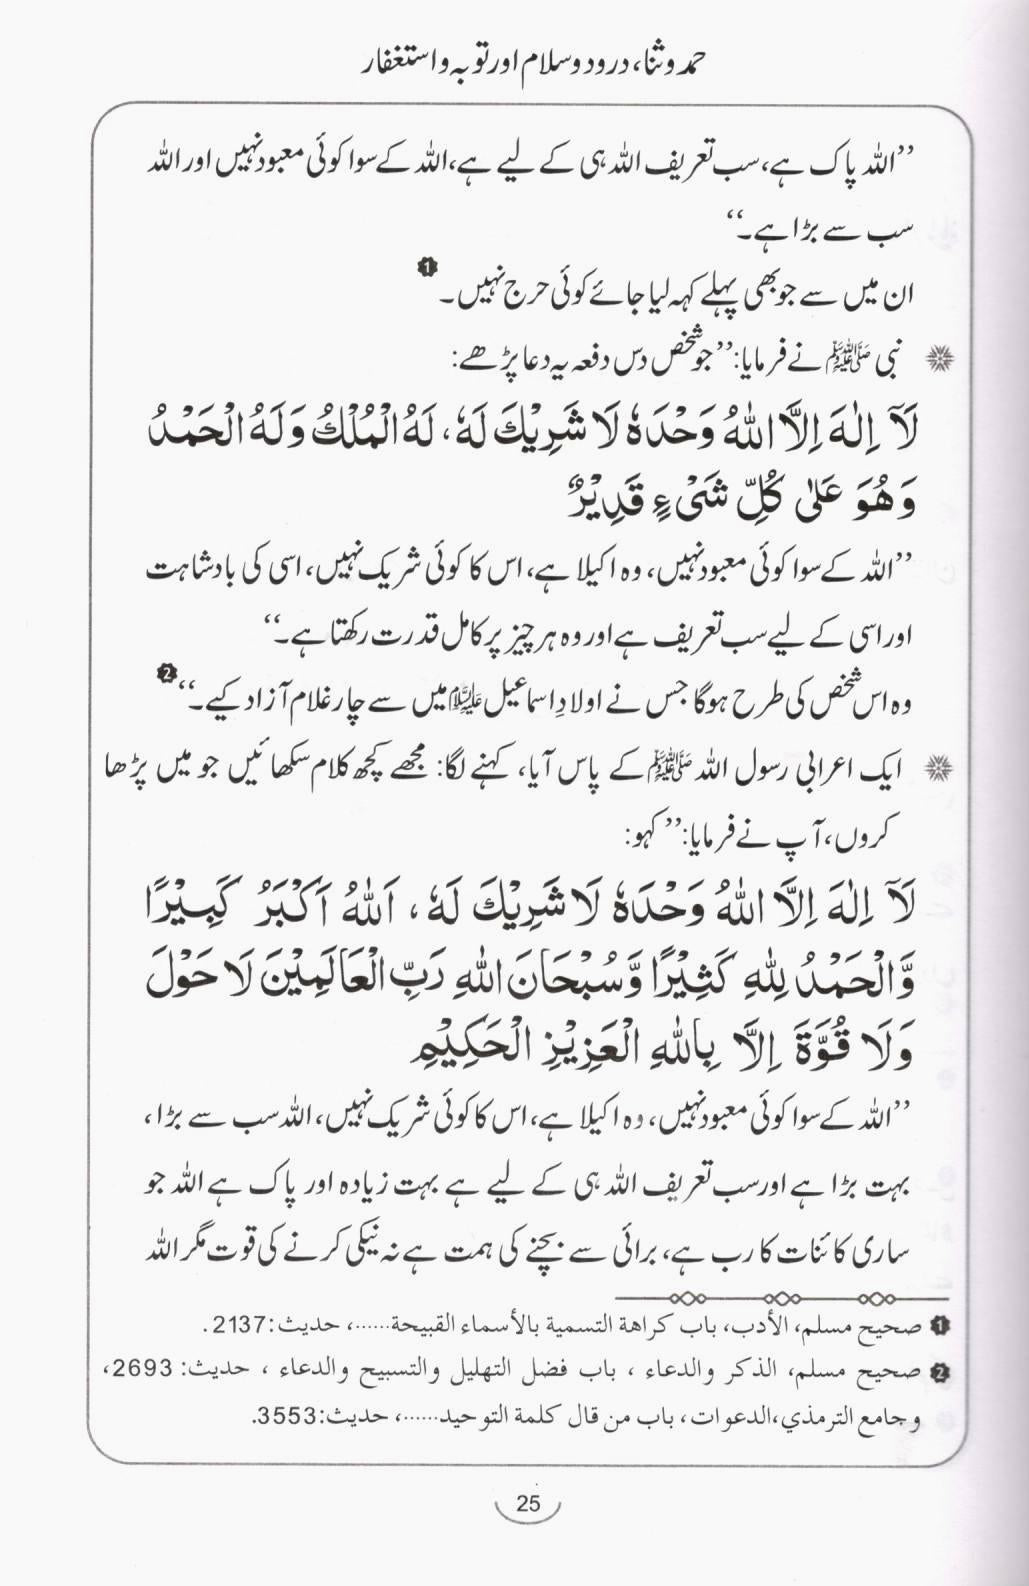 حمد و ثنا، درود و سلام اور توبہ و استغفار
’’اللہ پاک ہے، سب تعریف اللہ ہی کے لیے ہے، اللہ کے سوا کوئی معبود نہیں اور اللہ
سب سے بڑا ہے۔‘‘
ان میں سے جو بھی پہلے کہہ لیا جائے کوئی حرج نہیں۔ 1
نبی ﷺ نے فرمایا: ’’جو شخص دس دفعہ یہ دعا پڑھے:
لَآ اِلٰهَ اِلَّا اللّٰهُ وَحْدَهٗ لَا شَرِيْكَ لَهٗ، لَهُ الْمُلْكُ وَلَهُ الْحَمْدُ
وَهُوَ عَلٰى كُلِّ شَيْءٍ قَدِيْرٌ
’’اللہ کے سوا کوئی معبود نہیں، وہ اکیلا ہے، اس کا کوئی شریک نہیں، اسی کی بادشاہت
اور اسی کے لیے سب تعریف ہے اور وہ ہر چیز پر کامل قدرت رکھتا ہے۔‘‘
وہ اس شخص کی طرح ہوگا جس نے اولادِ اسماعیل علیہ السلام میں سے چار غلام آزاد کیے۔‘‘ 2
ایک اعرابی رسول اللہ ﷺ کے پاس آیا، کہنے لگا: مجھے کچھ کلام سکھائیں جو میں پڑھا
کروں، آپ نے فرمایا: ’’کہو:
لَآ اِلٰهَ اِلَّا اللّٰهُ وَحْدَهٗ لَا شَرِيْكَ لَهٗ، اَللّٰهُ اَكْبَرُ كَبِيْرًا
وَّالْحَمْدُ لِلّٰهِ كَثِيْرًا وَّسُبْحَانَ اللّٰهِ رَبِّ الْعَالَمِيْنَ لَا حَوْلَ
وَلَا قُوَّةَ اِلَّا بِاللّٰهِ الْعَزِيْزِ الْحَكِيْمِ
’’اللہ کے سوا کوئی معبود نہیں، وہ اکیلا ہے، اس کا کوئی شریک نہیں، اللہ سب سے بڑا،
بہت بڑا ہے اور سب تعریف اللہ ہی کے لیے ہے بہت زیادہ اور پاک ہے اللہ جو
ساری کائنات کا رب ہے، برائی سے بچنے کی ہمت ہے نہ نیکی کرنے کی قوت مگر اللہ
1 صحيح مسلم، الأدب، باب كراهة التسمية بالأسماء القبيحة......، حديث: 2137.
2 صحيح مسلم، الذكر والدعاء ، باب فضل التهليل والتسبيح والدعاء ، حديث: 2693،
وجامع الترمذي،الدعوات، باب من قال كلمة التوحيد......، حديث: 3553.
25